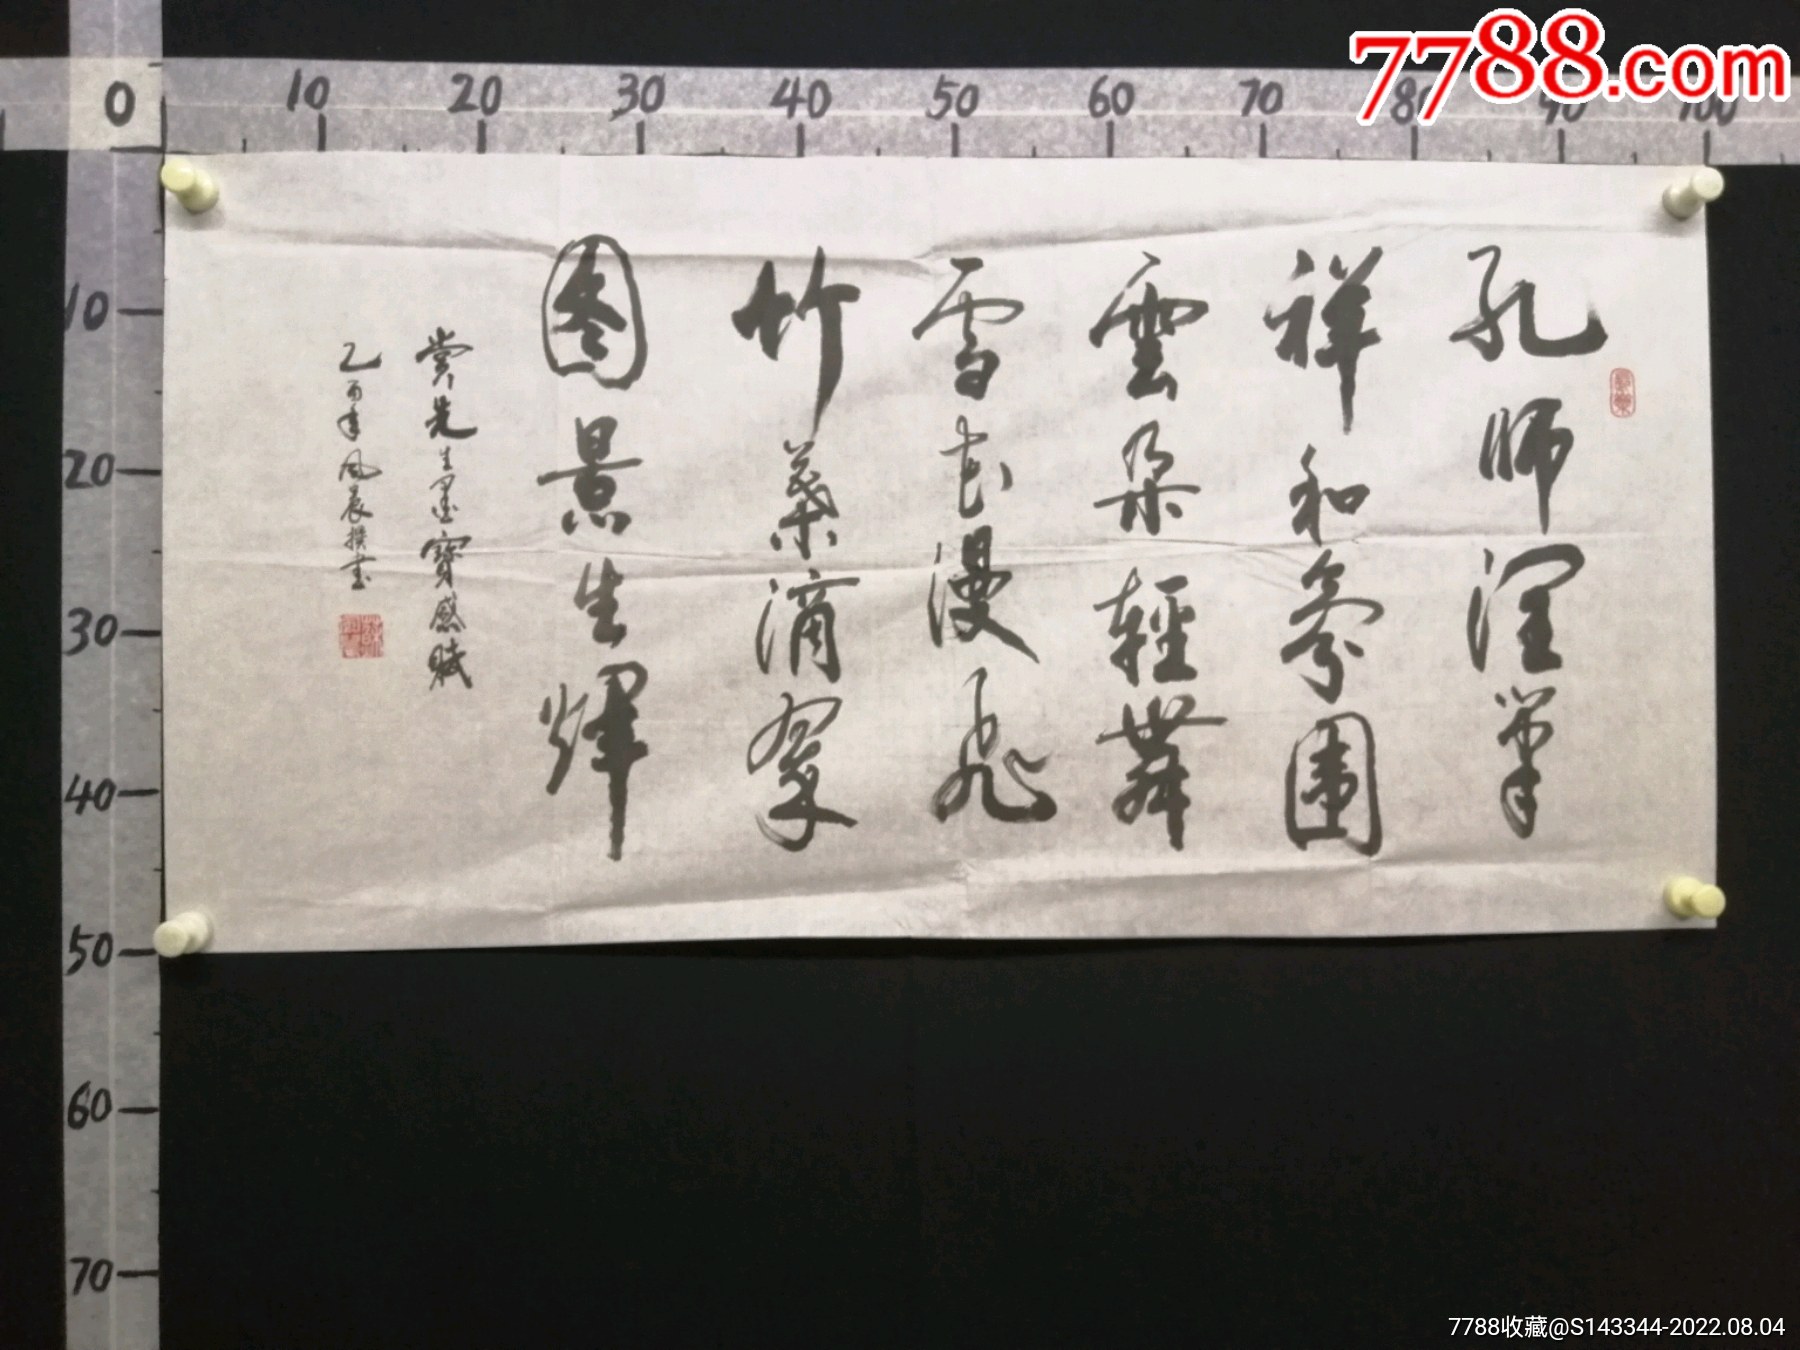 7788.com
0 10 20 30 40 50 60 70 80 90 100
10
20
30
40
50
60
70
孔师润筆
祥和氛围
雲朵輕舞
雪花漫飛
竹葉滴翠
图景生輝
赏先生墨寶感賦
乙酉年风晨撰书
7788收藏@S143344-2022.08.04